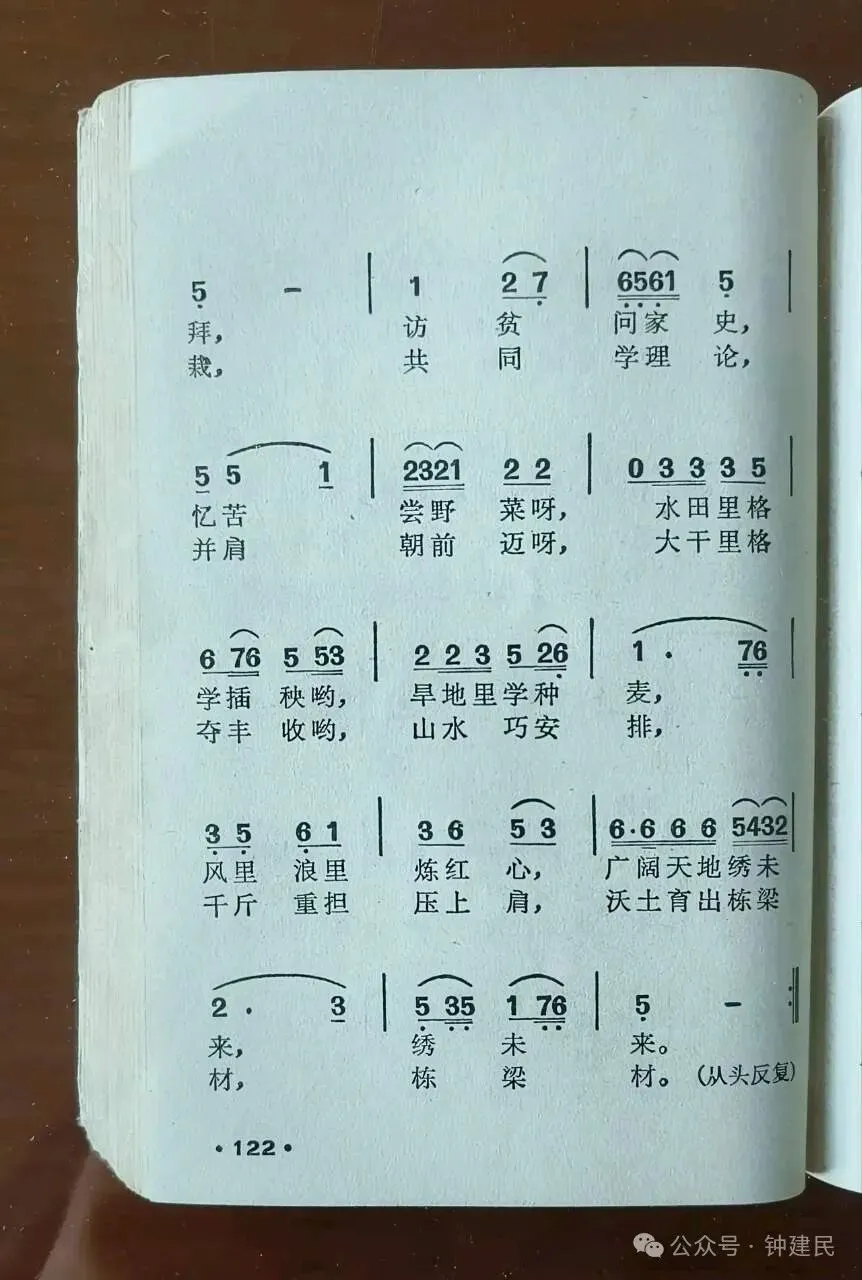 5 - | 1 2 7 | 6561 5 |
拜, 访 贫 问家 史,
栽, 共 同 学理 论,
5 5 1 | 2321 2 2 | 0 3 3 3 5
忆苦 尝野 菜呀, 水田里格
并肩 朝前 迈呀, 大干里格
6 76 5 53 | 2 2 3 5 26 | 1 · 76
学插 秧哟, 旱地里学种 麦,
夺丰 收哟, 山水 巧安 排,
3 5 6 1 | 3 6 5 3 | 6·6 6 6 5432
风里 浪里 炼红 心, 广阔天地绣未
千斤 重担 压上 肩, 沃土育出栋梁
2 · 3 | 5 35 1 76 | 5 - :‖
来, 绣 未 来。
材, 栋 梁 材。(从头反复)
·122·
公众号·钟建民